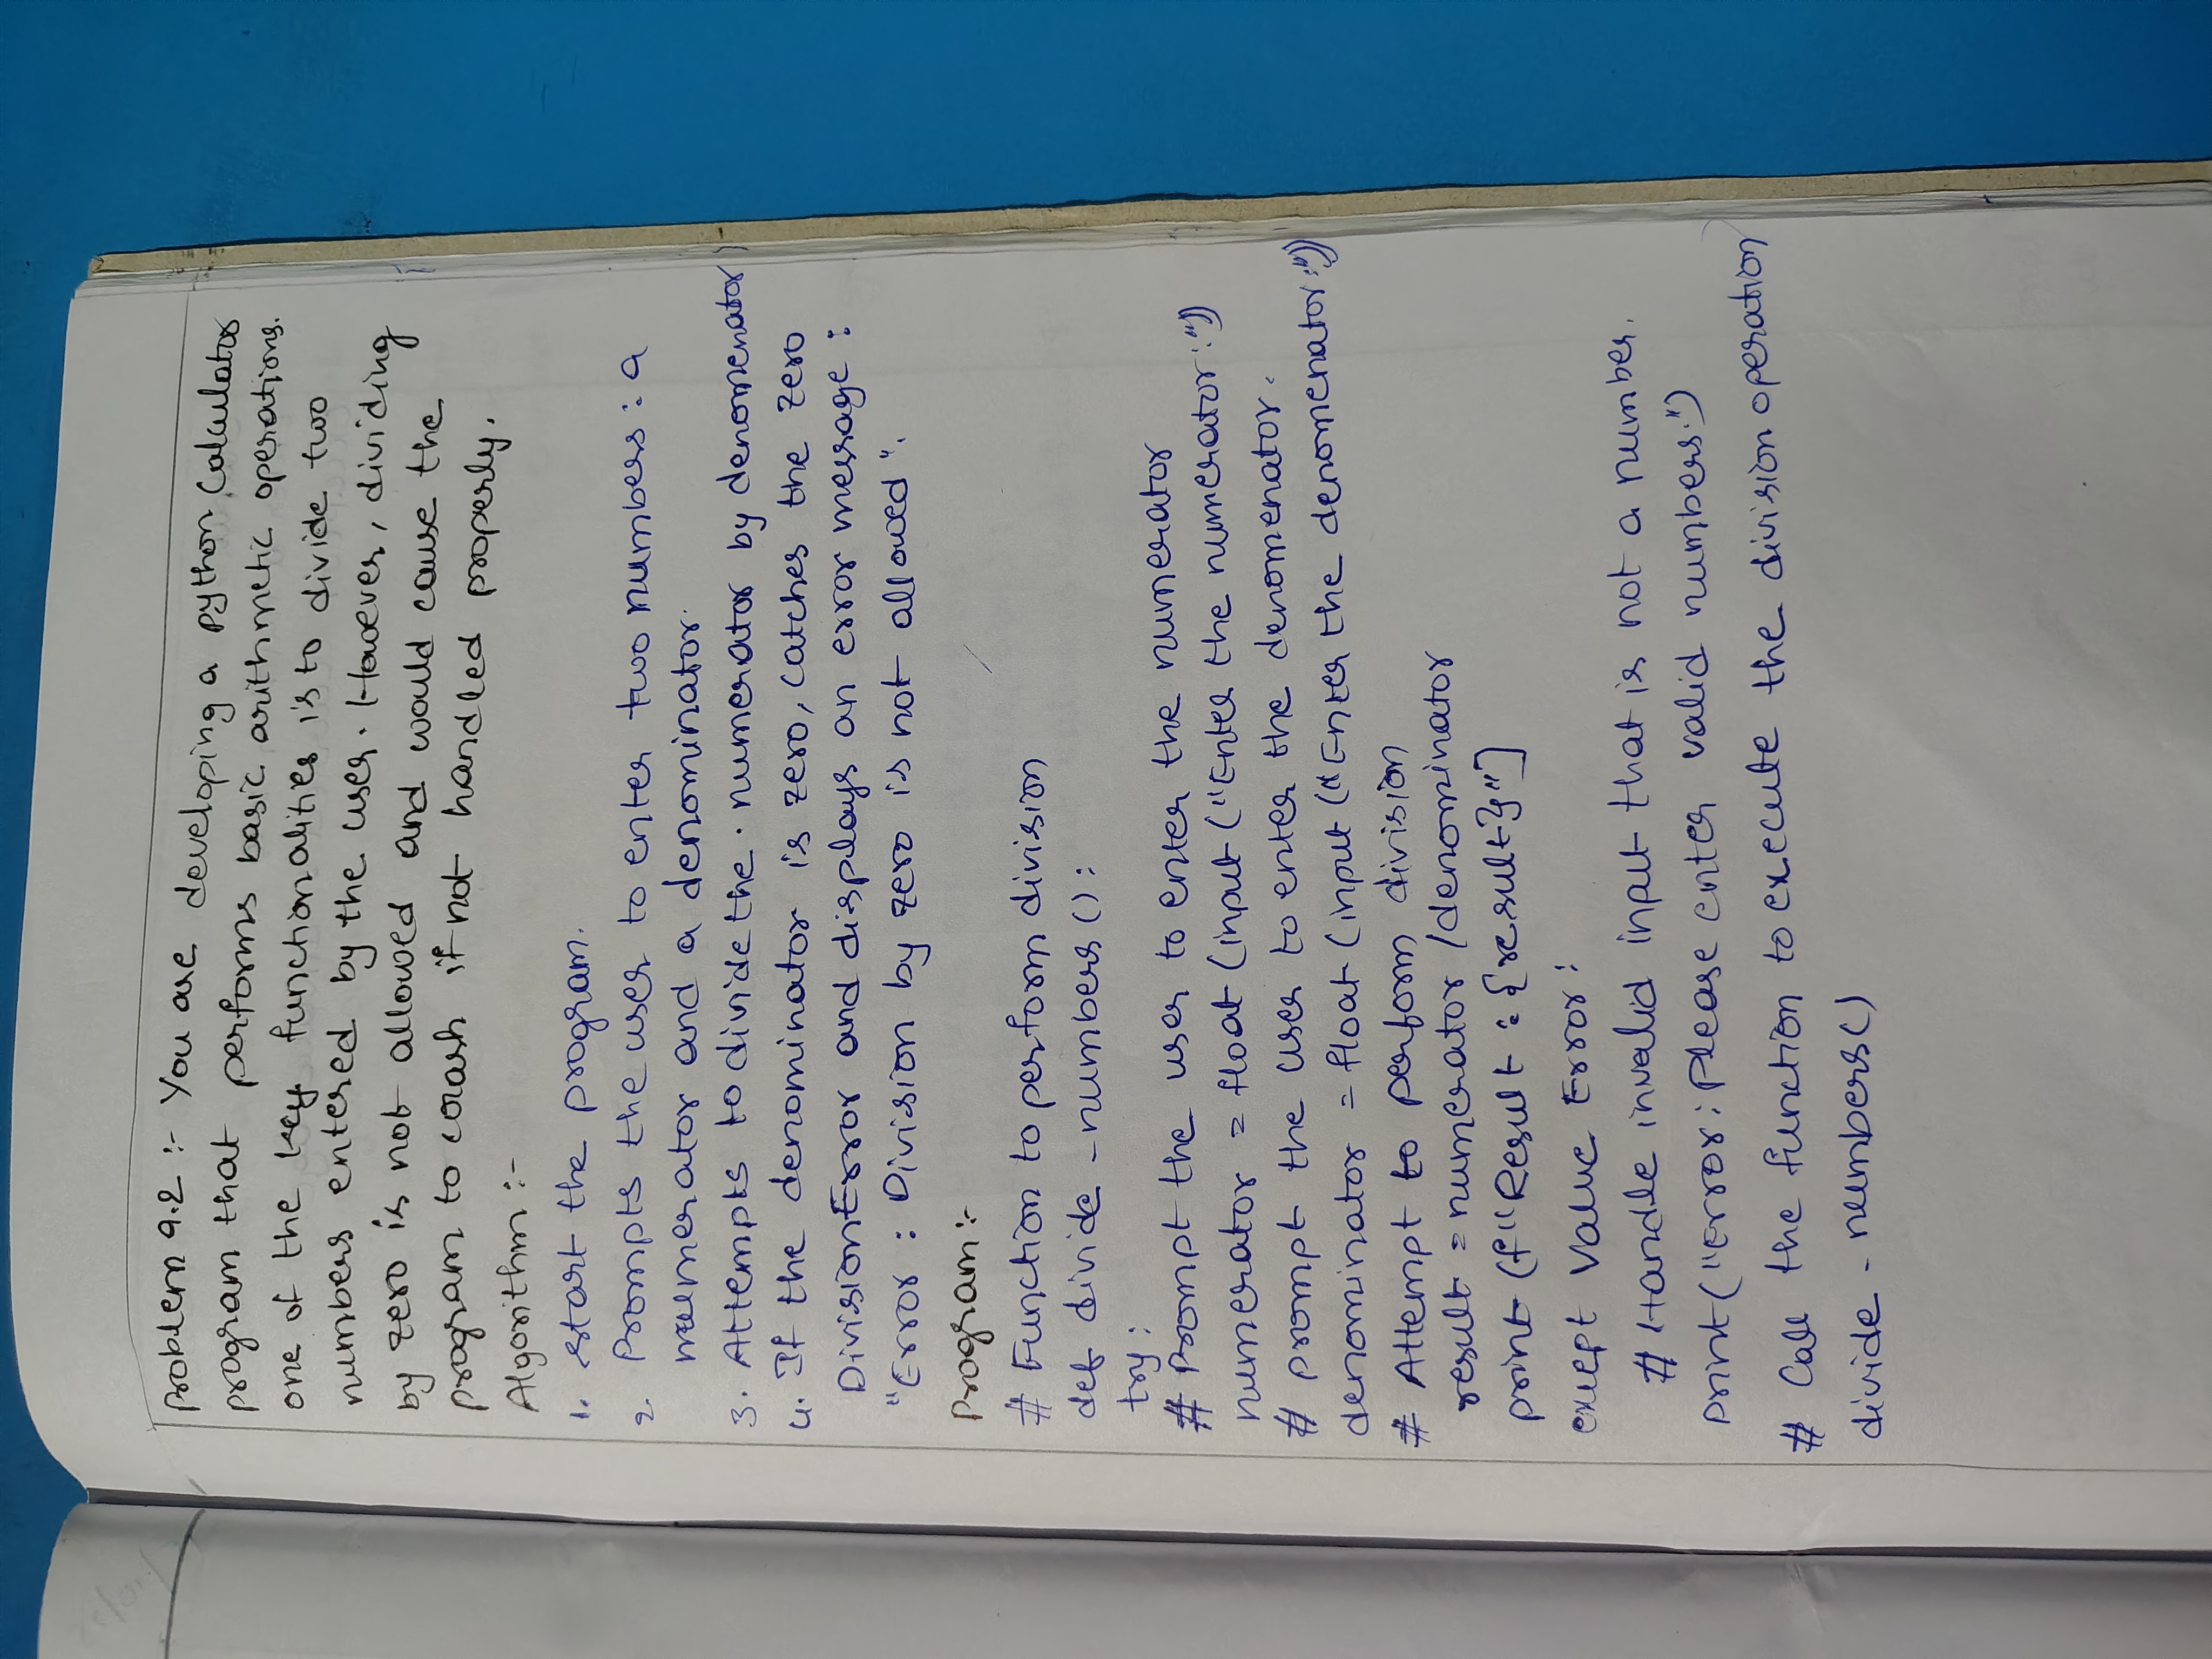 Problem 9.2 :- You are developing a python Calculator
program that performs basic arithmetic operations.
one of the key functionalities is to divide two
numbers entered by the user. However, dividing
by zero is not allowed and would cause the
program to crash if not handled properly.
Algorithm :-
1. start the program.
2. Prompts the user to enter two numbers : a
numerator and a denominator.
3. Attempts to divide the numerator by denomenator
4. If the denominator is zero, Catches the Zero
DivisionError and displays an error message :
"Error : Division by zero is not allowed".
Program :-
# Function to perform division
def divide _numbers () :
try :
# Prompt the user to enter the numerator
numerator = float (input ("Enter the numerator :"))
# prompt the user to enter the denomenator.
denominator = float (input ("Enter the denomenator :"))
# Attempt to perform division
result = numerator /denominator
print (f"Result : {result}"]
except Value Error :
# Handle invalid input that is not a number.
print ("Error : Please enter valid numbers.")
# Call the function to execute the division operation
divide _ numbers()